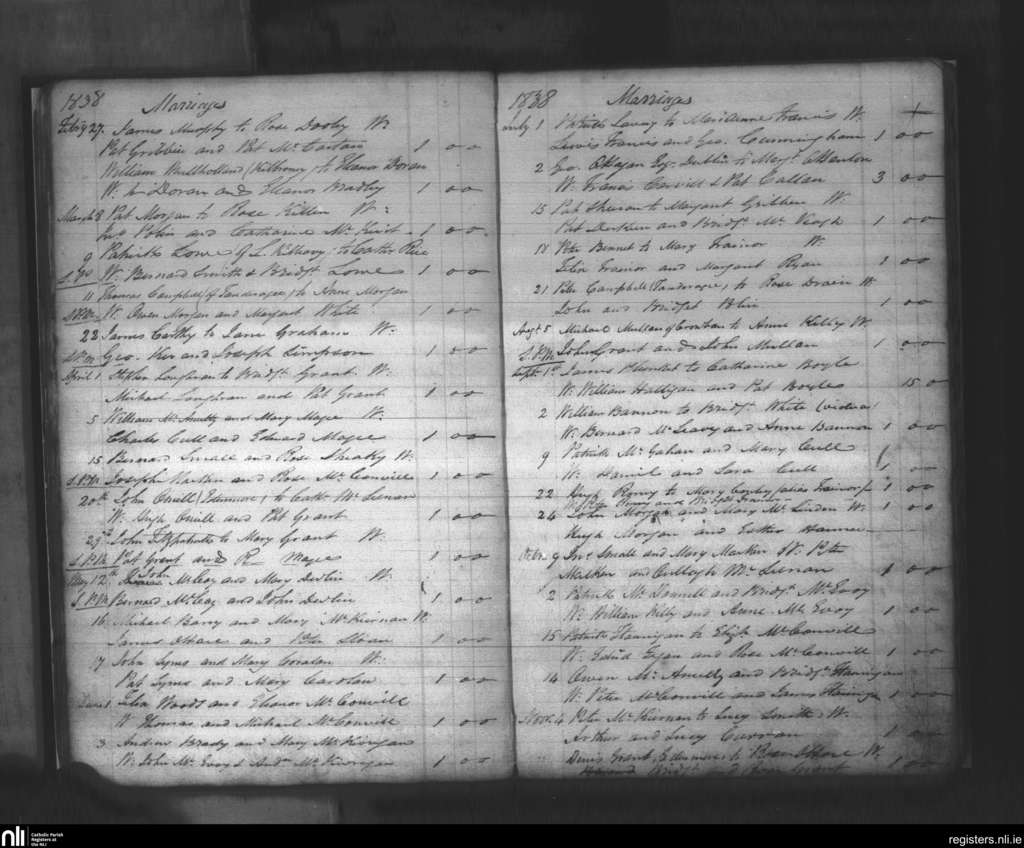 1838 Marriages
Feby 27. James Murphy to Rose Dooley W:
Pat Gribbin and Pat Mc Cartan 1 00
William Mullholland (Kilbroney) to Eleanor Doran
W. Doran and Eleanor Bradley 1 00
March 8 Pat Morgan to Rose Killen W:
Jno Polin and Catharine Mc 1 00
9 Patrick Lowe of L. Killeavy to Cathr Rice
W: Bernard Smith & Bridgt. Lowe 1 00
11 Thomas Campbell (of Tandragee) to Anne Morgan
W. Owen Morgan and Margaret White 1 00
22 James Carthy to Jane Graham W:
Geo. Ker and Joseph Simpson 1 00
April 1 Stephen Loughran to Bridgt. Grant W:
Michael Loughran and Pat Grant 1 00
5 William Mc Anulty and Mary Magee W:
Charles Cull and Edward Magee 1 00
15 Bernard Small and Rose Sheaky W:
Joseph Markin and Rose Mc Conville 1 00
20th John Oneill (Edenmore) to Cath. Mc Lenan
W. Hugh Oneill and Pat Grant 1 00
29th John Fitzpatrick to Mary Grant W:
Pat Grant and R Magee 1 00
May 12th John McCay and Mary Devlin W.
Bernard McCay and John Devlin 1 00
16 Michael Barry and Mary McKiernan W.
James OHare and Peter Sloan 1 00
17 John Lyms and Mary Carolan W:
Pat Lyms and Mary Carolan 1 00
June 1 Felix Woods and Eleanor McConvill
W Thomas and Michael McConvill 1 00
3 Andrew Brady and Mary McKivigan
W. John Mc Evoy & Andw McKivigan 1 00
1838 Marriages
July 1 Patrick Lavery to MariAnne Francis W.
Lewis Francis and Geo. Cunningham 1 00
2 Geo. OHagan Esq. Dublin to Margt. OHanlon
W. Francis Carvill & Pat Callan 3 00
15 Pat to Margaret Gribben W.
Pat Durken and Bridgt. Mc Veagh 1 00
18 Peter Bennet to Mary Trainor W.
Felix Trainor and Margaret Ryan 1 00
21 Peter Campbell (Tandragee) to Rose Draen W
John and Bridget Blin 1 00
Augt 5 Michael Mullan of to Anne Kelly W.
John Grant and John Mullan 1 00
Septr 1st James Plunket to Catharine Boyle
W. William Halligan and Pat Boyles 15 0
2 William Bannon to Bridgt. White (widow)
W. Bernard McLeavy and Anne Bannon 1 00
9 Patrick McGahan and Mary Cull
W. Hamil and Sara Cull 1 00
22 Hugh Romy to Mary Conley (alias Trainor) 1 00
24 John Morgan and Mary McLinden W. 1 00
Hugh Morgan and Esther Hannei
Octr. 9 Jno Small and Mary Markin W. Peter
Markin and Cullogh McLenan 1 00
2 Patrick McDannell and Bridgt. McEvoy
W. William Kelly and Anne McEvoy 1 00
15 Patrick Flannigan to Eliz. McConvill
W. Edwd Fegan and Rose McConvill 1 00
14 Owen McAnulty and Bridgt Flannigan
W. Peter McConvill and James 1 00
Novr. 4 Peter McKiernan to Lucy Smith W.
Arthur and Lucy Curran 1 00
Denis Grant (Edenmore) to OHare W.
Bridgt. and Grant 1 00
nli Catholic Parish Registers at the NLI
registers.nli.ie